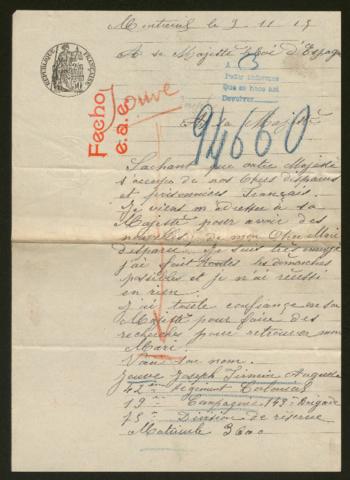 Montreuil le 9 11 15
A sa Majesté le Roi d'Espagne
RÉPUBLIQUE FRANÇAISE
A
Pedir informes
Que se hace así
Devolver
Jouve
Fecho
94660
A sa Majesté
Sachant que votre Majesté
s'occupe de nos Chers disparus
et prisonniers Français.
Je viens m'adresser à sa
Majesté pour avoir des
nouvelles de mon Cher Mari
disparu. Je suis très
j'ai fait toutes les demarches
possibles et je n'ai réussi
en rien.
J'ai toute confiance en sa
Majesté pour faire des
recherches pour retrouver mon
Mari.
Voici son nom.
Jouve Joseph Firmin Auguste
42 Régiment Colonial
19 Compagnie 149 Brigade
75 Division de réserve
Matricule 3600